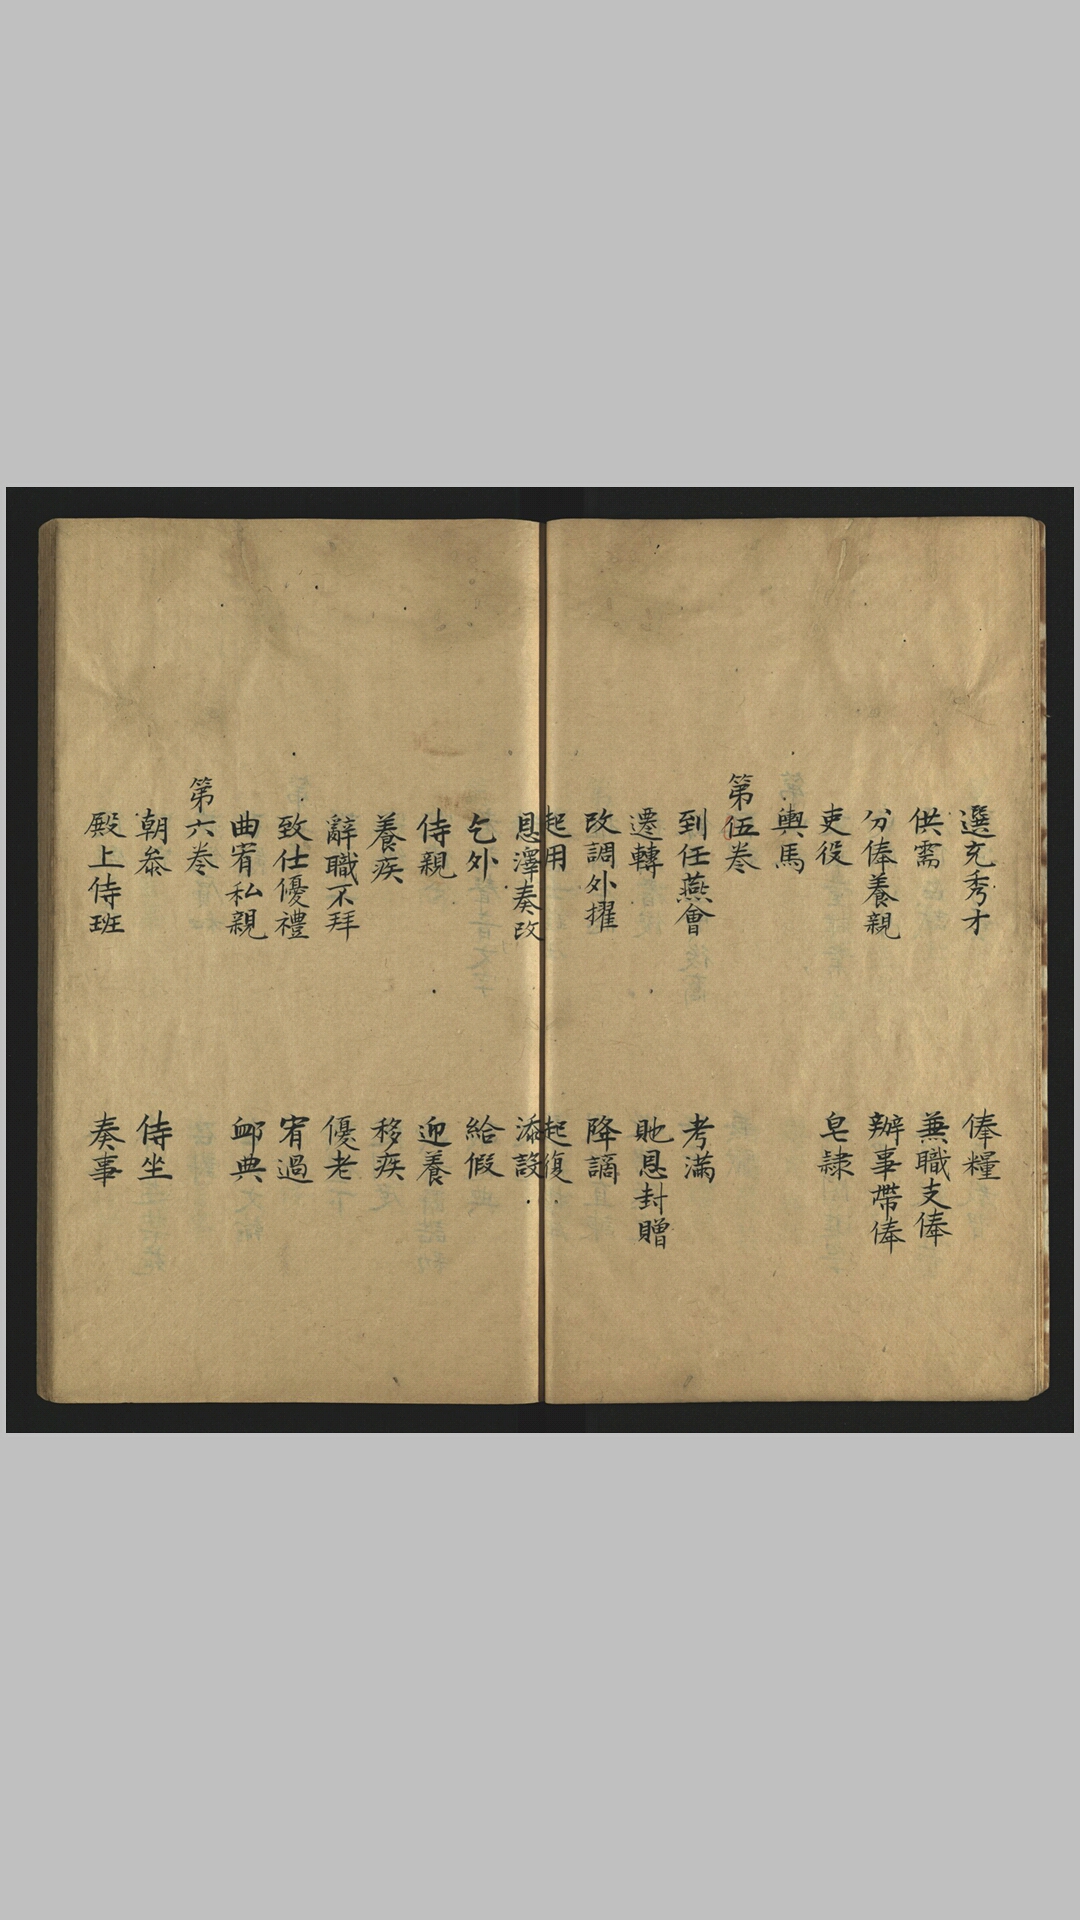 選充秀才　俸糧
供需　兼職支俸
分俸養親　辦事帶俸
吏役　皂隸
輿馬
第伍卷
到任燕會　考滿
遷轉　貤恩封贈
改調外擢　降謫
起用　起復
恩澤奏改　添設
乞外　給假
侍親　迎養
養疾　移疾
辭職不拜　優老
致仕優禮　宥過
曲宥私親　卹典
第六卷
朝叅　侍坐
殿上侍班　奏事